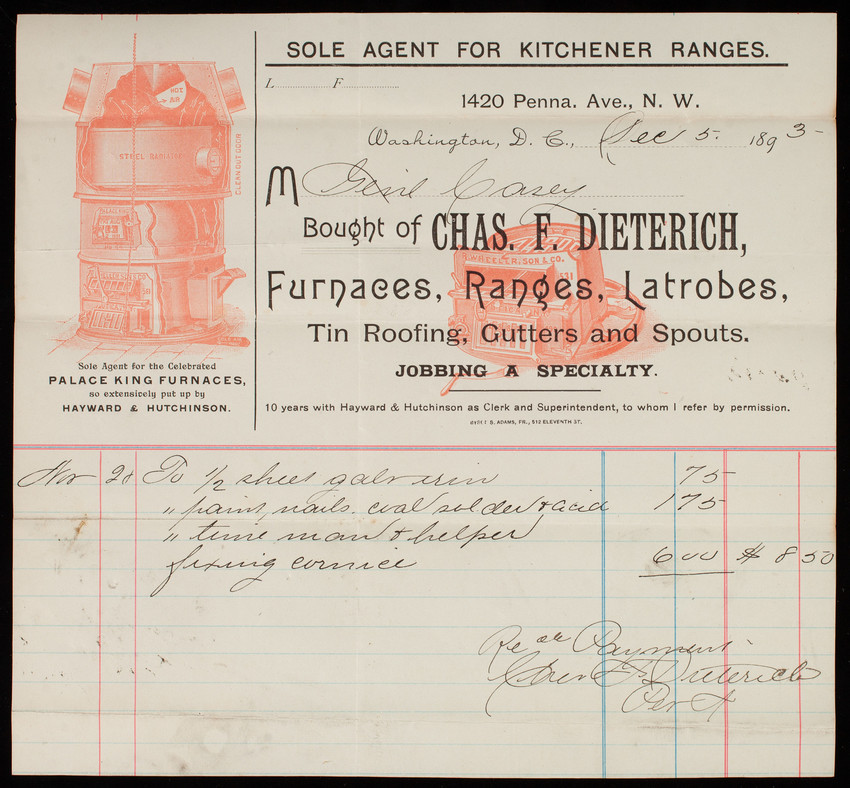 SOLE AGENT FOR KITCHENER RANGES.
L F
1420 Penna. Ave., N. W.
Washington, D. C., Dec 5. 1893-
M Genl Casey
Bought of CHAS. F. DIETERICH,
WHEELER, SON & CO.
531
Furnaces, Ranges, Latrobes,
Tin Roofing, Gutters and Spouts.
JOBBING A SPECIALTY.
10 years with Hayward & Hutchinson as Clerk and Superintendent, to whom I refer by permission.
B. ADAMS, PR., 512 ELEVENTH ST.
HOT AIR
STEEL RADIATOR
CLEAN OUT DOOR
Sole Agent for the Celebrated
PALACE KING FURNACES,
so extensively put up by
HAYWARD & HUTCHINSON.
Nov 28 To 1/2 sheet galv iron 75
" paint, nails. coal solder & acid 175
" time man & helper
fixing cornice 600 $ 8 50
Payment
Chas F Dieterich
Per